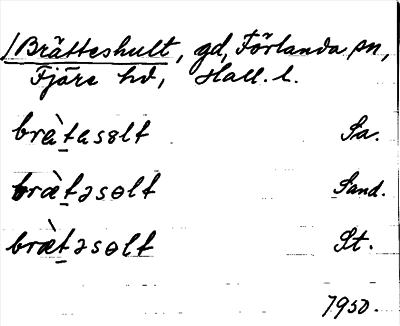 /Brätteshult, gd, Förlanda sn,
Fjäre hd, Hall. l.
brät̠asɵlt Sa.
bræ̀t̠əsɵlt Sand.
bræ̀t̠əsɵlt St.
1950.